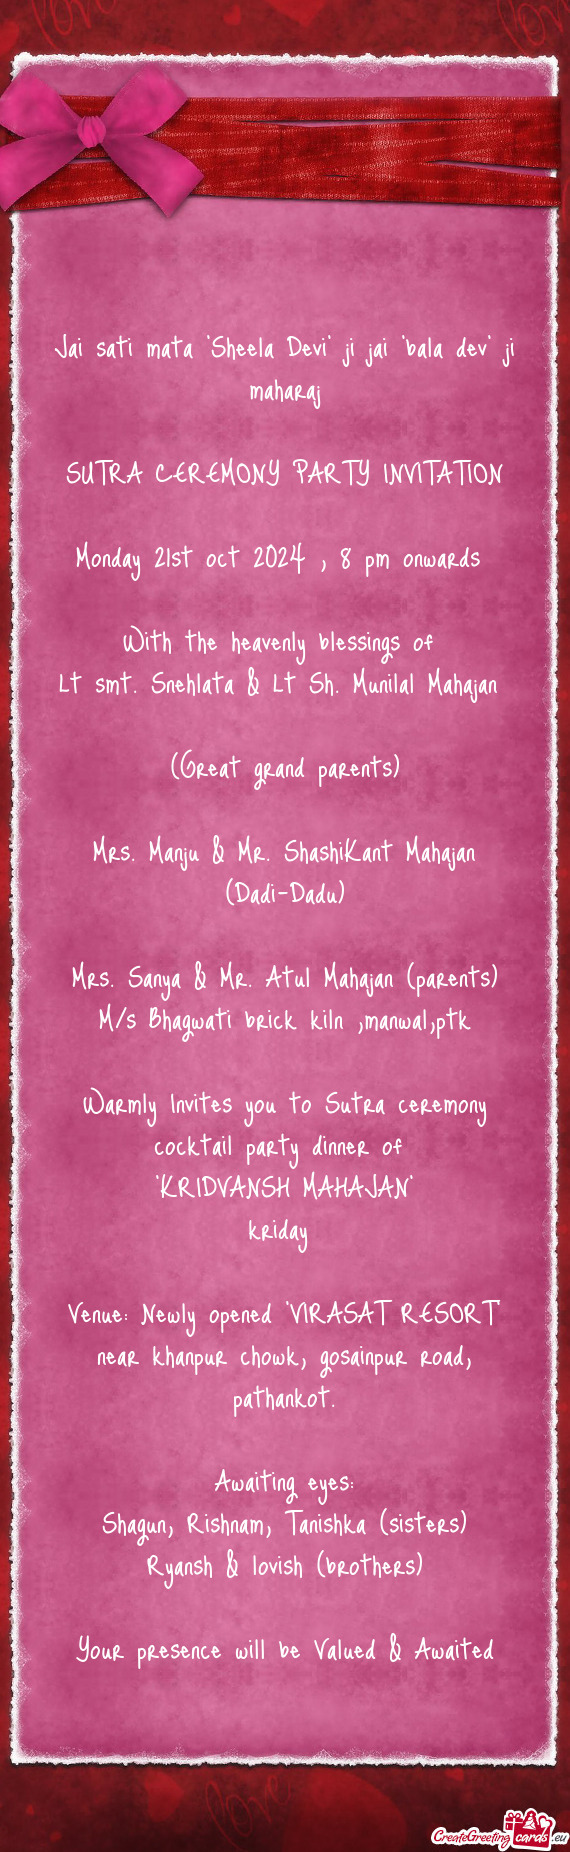 Jai sati mata "Sheela Devi" ji jai "bala dev" ji
maharaj
SUTRA CEREMONY PARTY INVITATION
Monday 21st oct 2024 , 8 pm onwards
With the heavenly blessings of
Lt smt. Snehlata & Lt Sh. Munilal Mahajan
(Great grand parents)
Mrs. Manju & Mr. ShashiKant Mahajan
(Dadi-Dadu)
Mrs. Sanya & Mr. Atul Mahajan (parents)
M/s Bhagwati brick kiln ,manwal,ptk
Warmly Invites you to Sutra ceremony
cocktail party dinner of
"KRIDVANSH MAHAJAN"
kriday
Venue: Newly opened "VIRASAT RESORT"
near khanpur chowk, gosainpur road,
pathankot.
Awaiting eyes:
Shagun, Rishnam, Tanishka (sisters)
Ryansh & lovish (brothers)
Your presence will be Valued & Awaited
love
love
love
CreateGreetingcards.eu